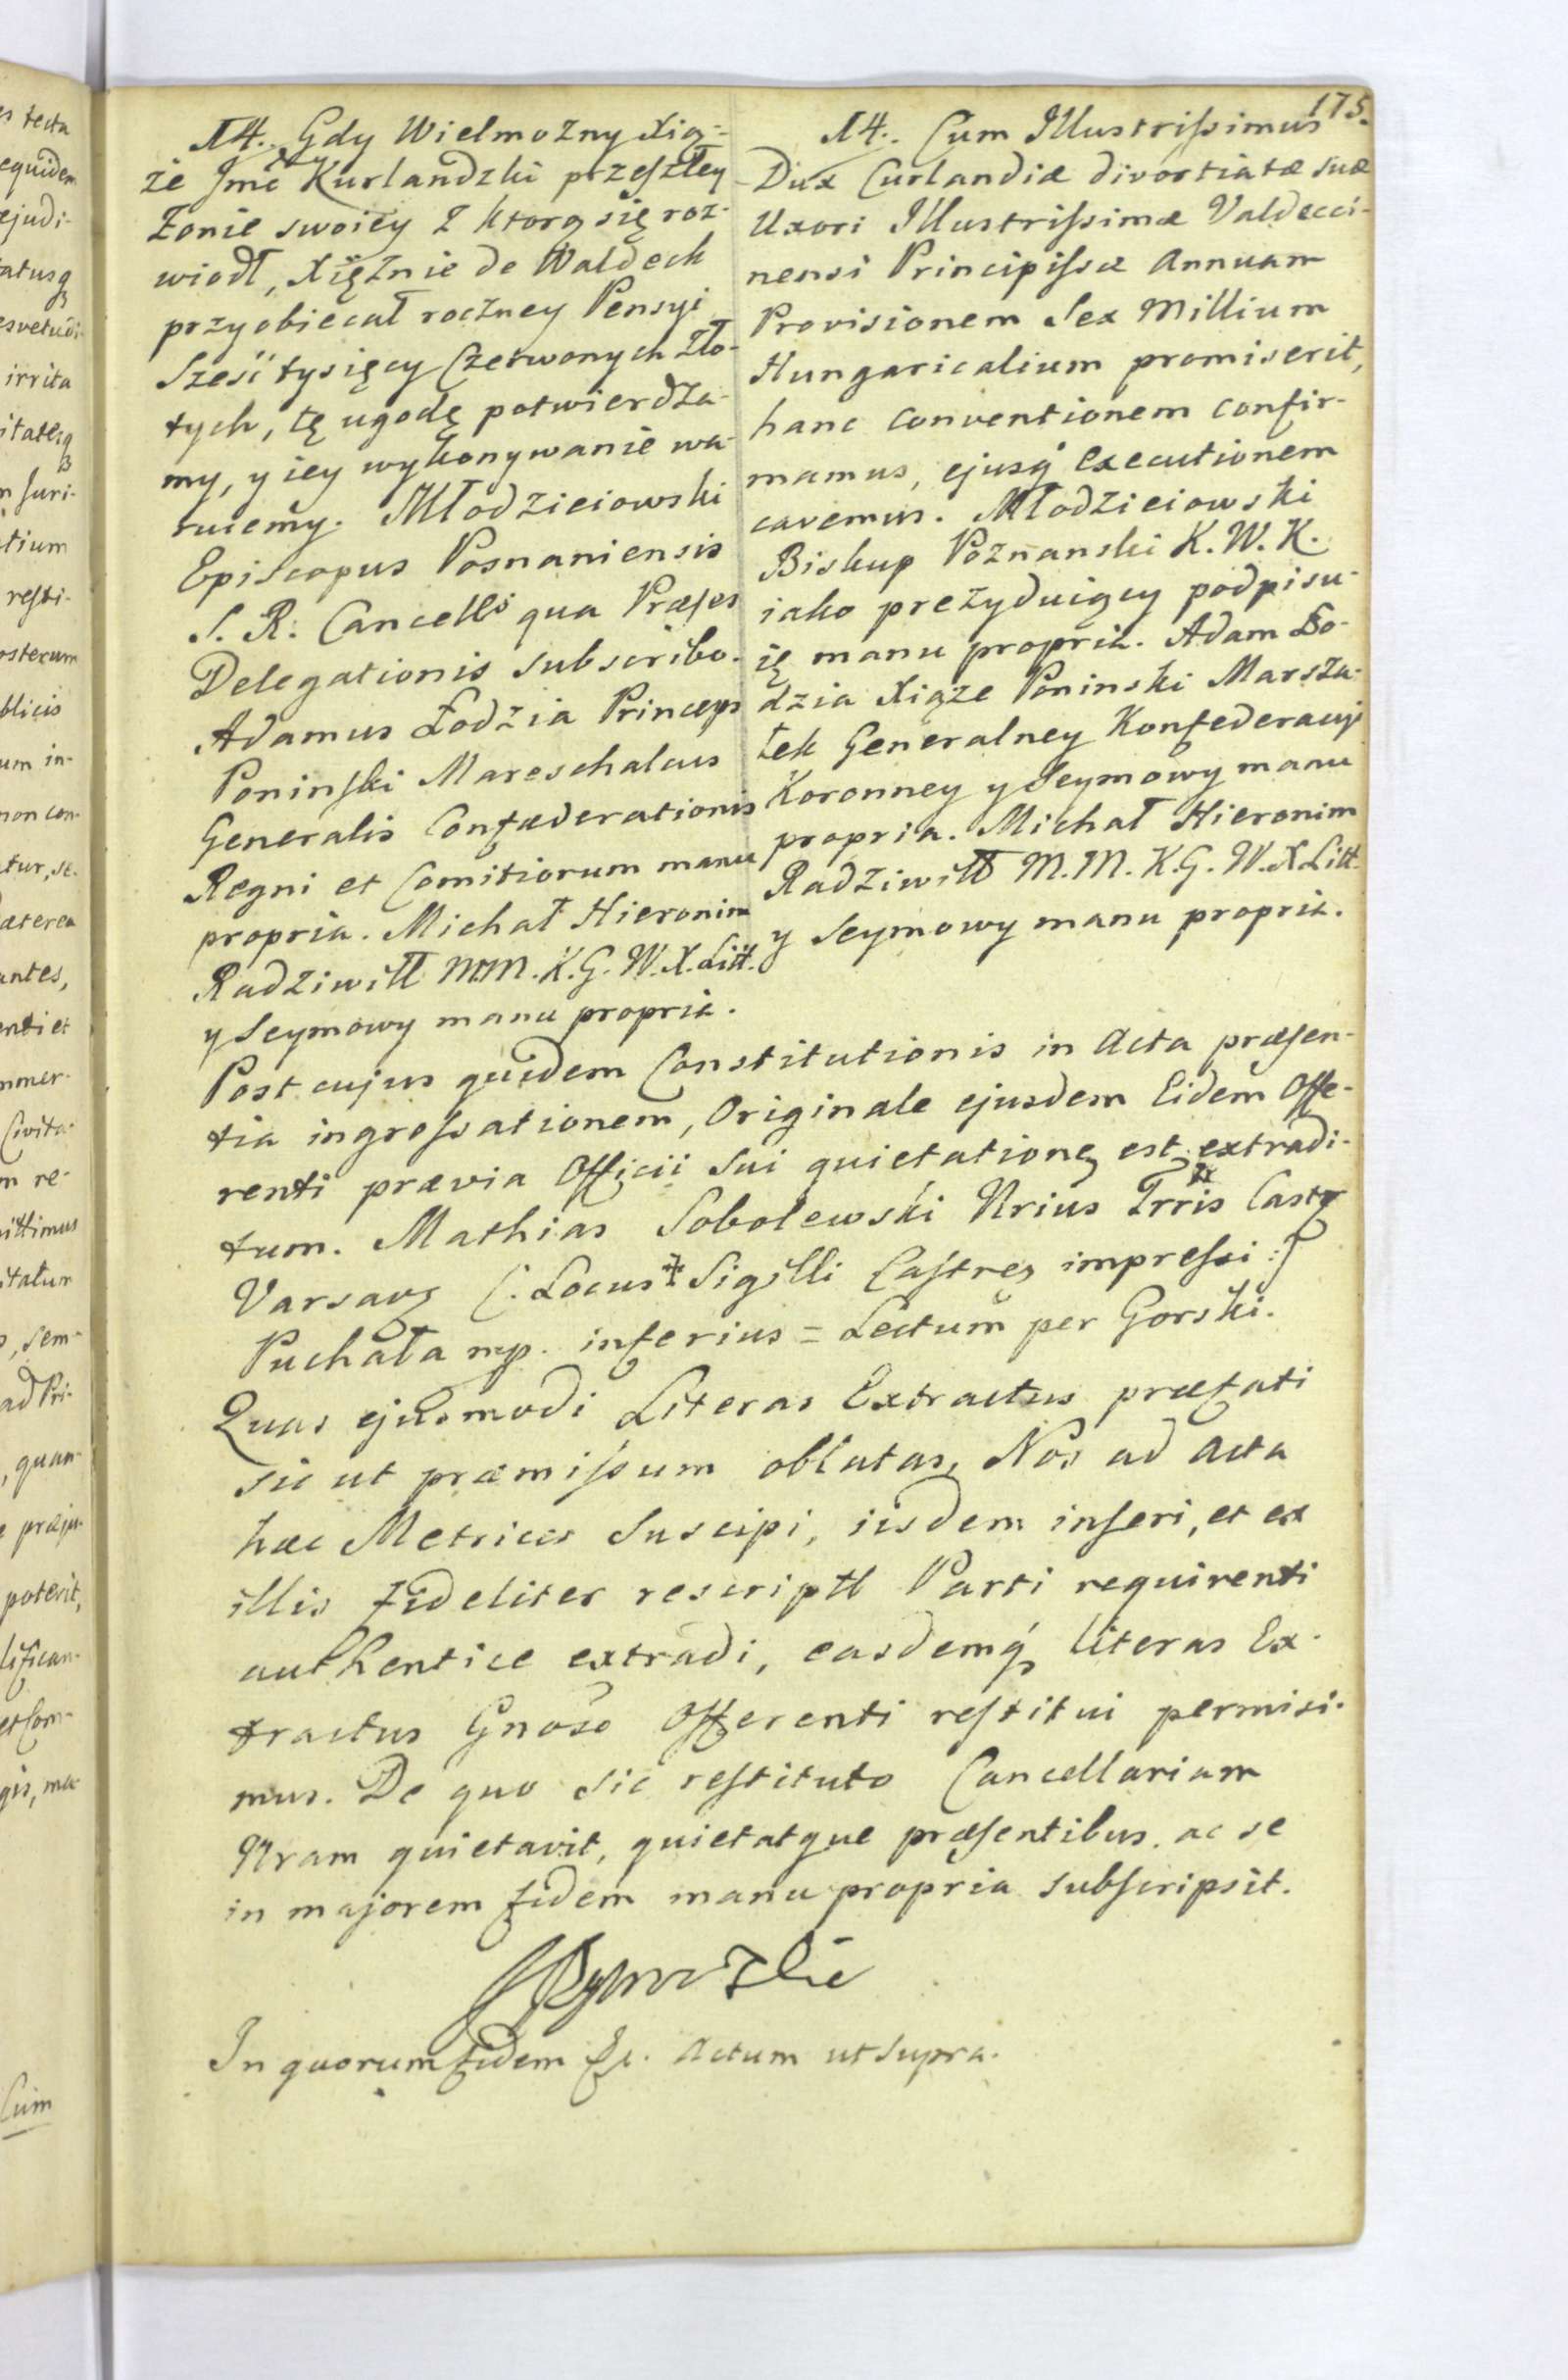 175.
14. Gdy Wielmozny Xią-
że Jmć Kurlandzki przeszłey
Żonie swoiey z ktorą się roz-
wiodł, Xiężnie de Waldeck
przyobiecał roczney Pensyi
Sześć tysięcy Czerwonych Zło-
tych, tę ugodę potwierdza-
my, y iey wykonywanie wa-
ruiemy. Młodzieiowski
Episcopus Posnaniensis
S. R. Cancells qua Præses
Delegationis subscribo.
Adamus Łodzia Princeps
Poninski Mareschalcus
Generalis Confæderationis
Regni et Comitiorum manu
propria. Michał Hieronim
Radziwiłł M.M. K.G. W.X. Litt.
y Seymowy manu propria.
14. Cum Illustrissimus
Dux Curlandiæ divortiatæ suæ
Uxori Illustrissimæ Valdecci-
nensi Principissæ Annuam
Provisionem Sex Millium
Hungaricalium promiserit,
hanc conventionem confir-
mamus, ejusq́ executionem
cavemus. Młodzieiowski
Biskup Poznanski K. W. K.
iako prezyduiący podpisu-
ię manu propria. Adam Ło-
dzia Xiąże Poninski Marsza-
łek Generalney Konfederacyi
Koronney y Seymowy manu
propria. Michał Hieronim
Radziwiłł M.M. K.G. W.X Litt.
y Seymowy manu propria.
Post cujus quidem Constitutionis in Acta præsen-
tia ingrossationem, Originale ejusdem Eidem Offe-
renti prævia Officii sui quietatione est extradi-
tum. Mathias Sobolewski Nrius Trris Castr
Varsav (: Locus Sigilli Castren impressi :)
Puchała mp. inferius = Lectum per Gorski.
Quas ejusmodi Literas Extractus præfati
sic ut præmissum oblatas, Nos ad Acta
hæc Metrices Suscipi, iisdem inseri, et ex
illis fideliter rescriptt Parti requirenti
authentice extradi, easdemq́ literas Ex-
tractus Gnoso Offerenti restitui permisi-
mus. De quo sic restituto Cancellariam
Nram quietavit, quietatque præsentibus, ac se
in majorem fidem manu propria subscripsit.
In quorum fidem &c. Actum ut supra.